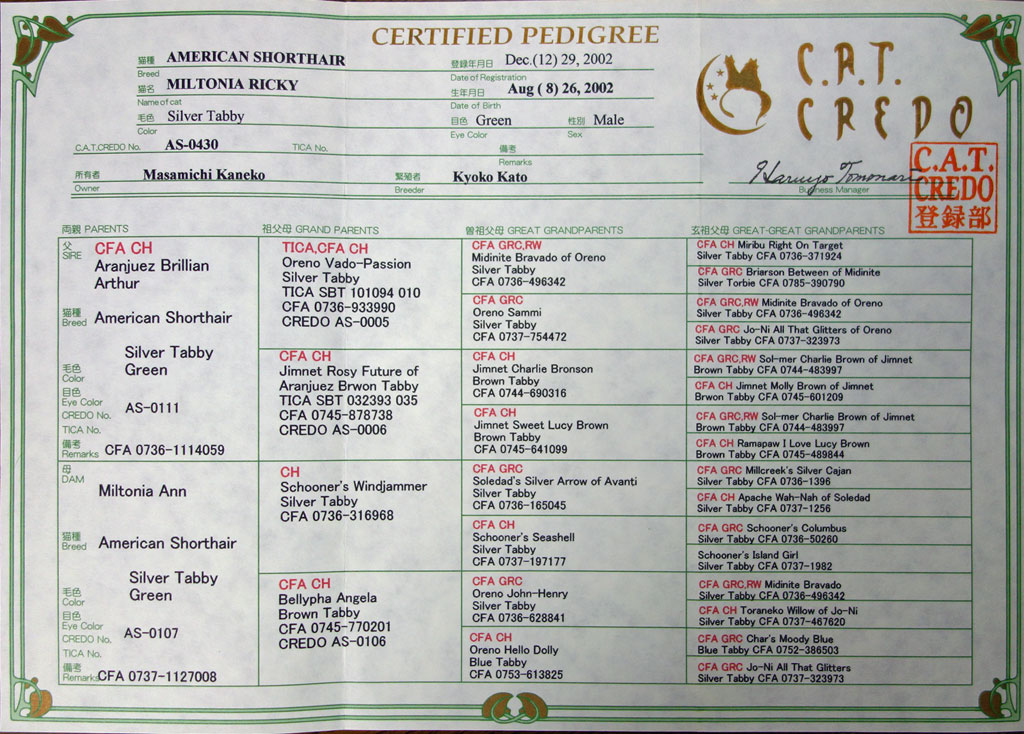 CERTIFIED PEDIGREE
猫種 AMERICAN SHORTHAIR
Breed
猫名 MILTONIA RICKY
Name of cat
毛色 Silver Tabby
Color
C.A.T.CREDO No. AS-0430 TICA No.
登録年月日 Dec.(12) 29, 2002
Date of Registration
生年月日 Aug ( 8) 26, 2002
Date of Birth
目色 Green 性別 Male
Eye Color Sex
備考
Remarks
所有者 Masamichi Kaneko 繁殖者 Kyoko Kato
Owner Breeder
C.A.T.
CREDO
Haruyo Tomonari
Business Manager
C.A.T.
CREDO
登録部
両親 PARENTS
父
SIRE
CFA CH
Aranjuez Brillian
Arthur
猫種
Breed American Shorthair
Silver Tabby
毛色
Color
Green
目色
Eye Color
CREDO No. AS-0111
TICA No.
備考
Remarks CFA 0736-1114059
母
DAM
Miltonia Ann
猫種
Breed American Shorthair
Silver Tabby
毛色
Color
Green
目色
Eye Color
CREDO No. AS-0107
TICA No.
備考
Remarks CFA 0737-1127008
祖父母 GRAND PARENTS
TICA,CFA CH
Oreno Vado-Passion
Silver Tabby
TICA SBT 101094 010
CFA 0736-933990
CREDO AS-0005
CFA CH
Jimnet Rosy Future of
Aranjuez Brwon Tabby
TICA SBT 032393 035
CFA 0745-878738
CREDO AS-0006
CH
Schooner's Windjammer
Silver Tabby
CFA 0736-316968
CFA CH
Bellypha Angela
Brown Tabby
CFA 0745-770201
CREDO AS-0106
曽祖父母 GREAT GRANDPARENTS
CFA GRC,RW
Midinite Bravado of Oreno
Silver Tabby
CFA 0736-496342
CFA GRC
Oreno Sammi
Silver Tabby
CFA 0737-754472
CFA CH
Jimnet Charlie Bronson
Brown Tabby
CFA 0744-690316
CFA CH
Jimnet Sweet Lucy Brown
Brown Tabby
CFA 0745-641099
CFA GRC
Soledad's Silver Arrow of Avanti
Silver Tabby
CFA 0736-165045
CFA CH
Schooner's Seashell
Silver Tabby
CFA 0737-197177
CFA GRC
Oreno John-Henry
Silver Tabby
CFA 0736-628841
CFA CH
Oreno Hello Dolly
Blue Tabby
CFA 0753-613825
玄祖父母 GREAT-GREAT GRANDPARENTS
CFA CH Miribu Right On Target
Silver Tabby CFA 0736-371924
CFA GRC Briarson Between of Midinite
Silver Torbie CFA 0785-390790
CFA GRC,RW Midinite Bravado of Oreno
Silver Tabby CFA 0736-496342
CFA GRC Jo-Ni All That Glitters of Oreno
Silver Tabby CFA 0737-323973
CFA GRC,RW Sol-mer Charlie Brown of Jimnet
Brown Tabby CFA 0744-483997
CFA CH Jimnet Molly Brown of Jimnet
Brwon Tabby CFA 0745-601209
CFA GRC,RW Sol-mer Charlie Brown of Jimnet
Brown Tabby CFA 0744-483997
CFA CH Ramapaw I Love Lucy Brown
Brown Tabby CFA 0745-489844
CFA GRC Millcreek's Silver Cajan
Silver Tabby CFA 0736-1396
CFA CH Apache Wah-Nah of Soledad
Silver Tabby CFA 0737-1256
CFA GRC Schooner's Columbus
Silver Tabby CFA 0736-50260
Schooner's Island Girl
Silver Tabby CFA 0737-1982
CFA GRC,RW Midinite Bravado
Silver Tabby CFA 0736-496342
CFA CH Toraneko Willow of Jo-Ni
Silver Tabby CFA 0737-467620
CFA GRC Char's Moody Blue
Blue Tabby CFA 0752-386503
CFA GRC Jo-Ni All That Glitters
Silver Tabby CFA 0737-323973